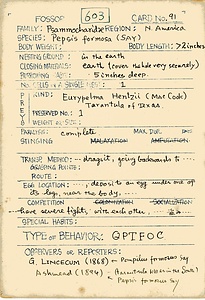 FOSSOR 603 CARD No. 91
FAMILY: Psammocharidae REGION: N. America
SPECIES: Pepsis formosa (SAY)
BODY WEIGHT: BODY LENGTH: >2 inches
NESTING GROUND: in the earth
CLOSING MATERIALS: earth (cover the hole very securely)
BURROWING 5 inches deep.
No. CELLS IN A SINGLE
PREYS KIND: Eurypelma Hentzii (Mac Cook)
Tarantula of Texas.
PRESERVED No.: 1
WEIGHT OR SIZE:
PARALYSIS: complete MAX. DUR.
STINGING MALAXATION AMPUTATION
TRANSP. METHOD: drag it, going backwards to
GRASPING POINTS:
ROUTE:
EGG LOCATION: deposit an egg under one of
its legs, near the body.
COMPETITION SOCIALIZATION
have several fights, with each other.
SPECIAL HABITS:
TYPE OF BEHAVIOR: OPTFOC
OBSERVERS OR REPORTERS:
G. LINCECUM (1868) Pompilus formosus Say
Ashmead (1894) in the South)
Pepsis formosus Say